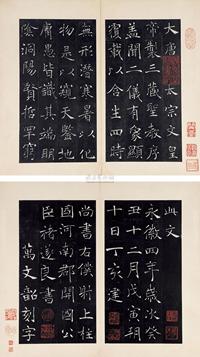 大唐太宗文皇
帝製三藏聖教序
盖聞二儀有象顯
覆載以含生四時
無形潛寒暑以化
物是以窺天鑒地
庸愚皆識其端明
陰洞陽賢哲罕窮
永徽四年歲次癸
丑十二月戊寅朔
十日丁亥建
尚書右僕射上柱
國河南郡開國公
臣褚遂良書
萬文韶刻字